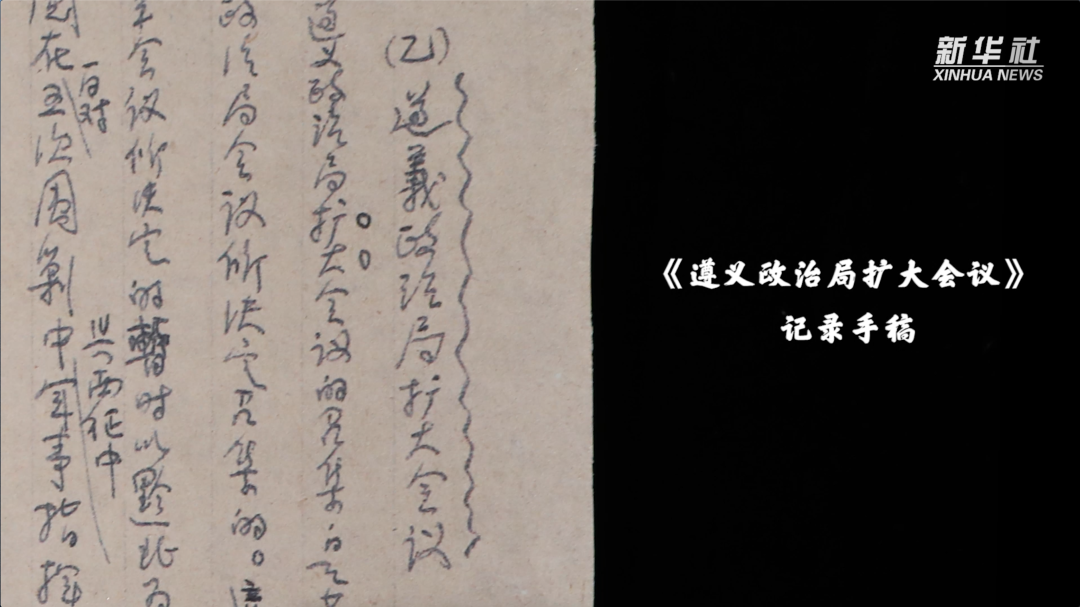 (乙)遵義政治局扩大会议
遵义政治局扩大会议的召集
政治局会议所决定召集的。這
会议所决定的暫时以黔北为
在五次围剿中军事指揮
与西征中
新华社
XINHUA NEWS
《遵义政治局扩大会议》
记录手稿